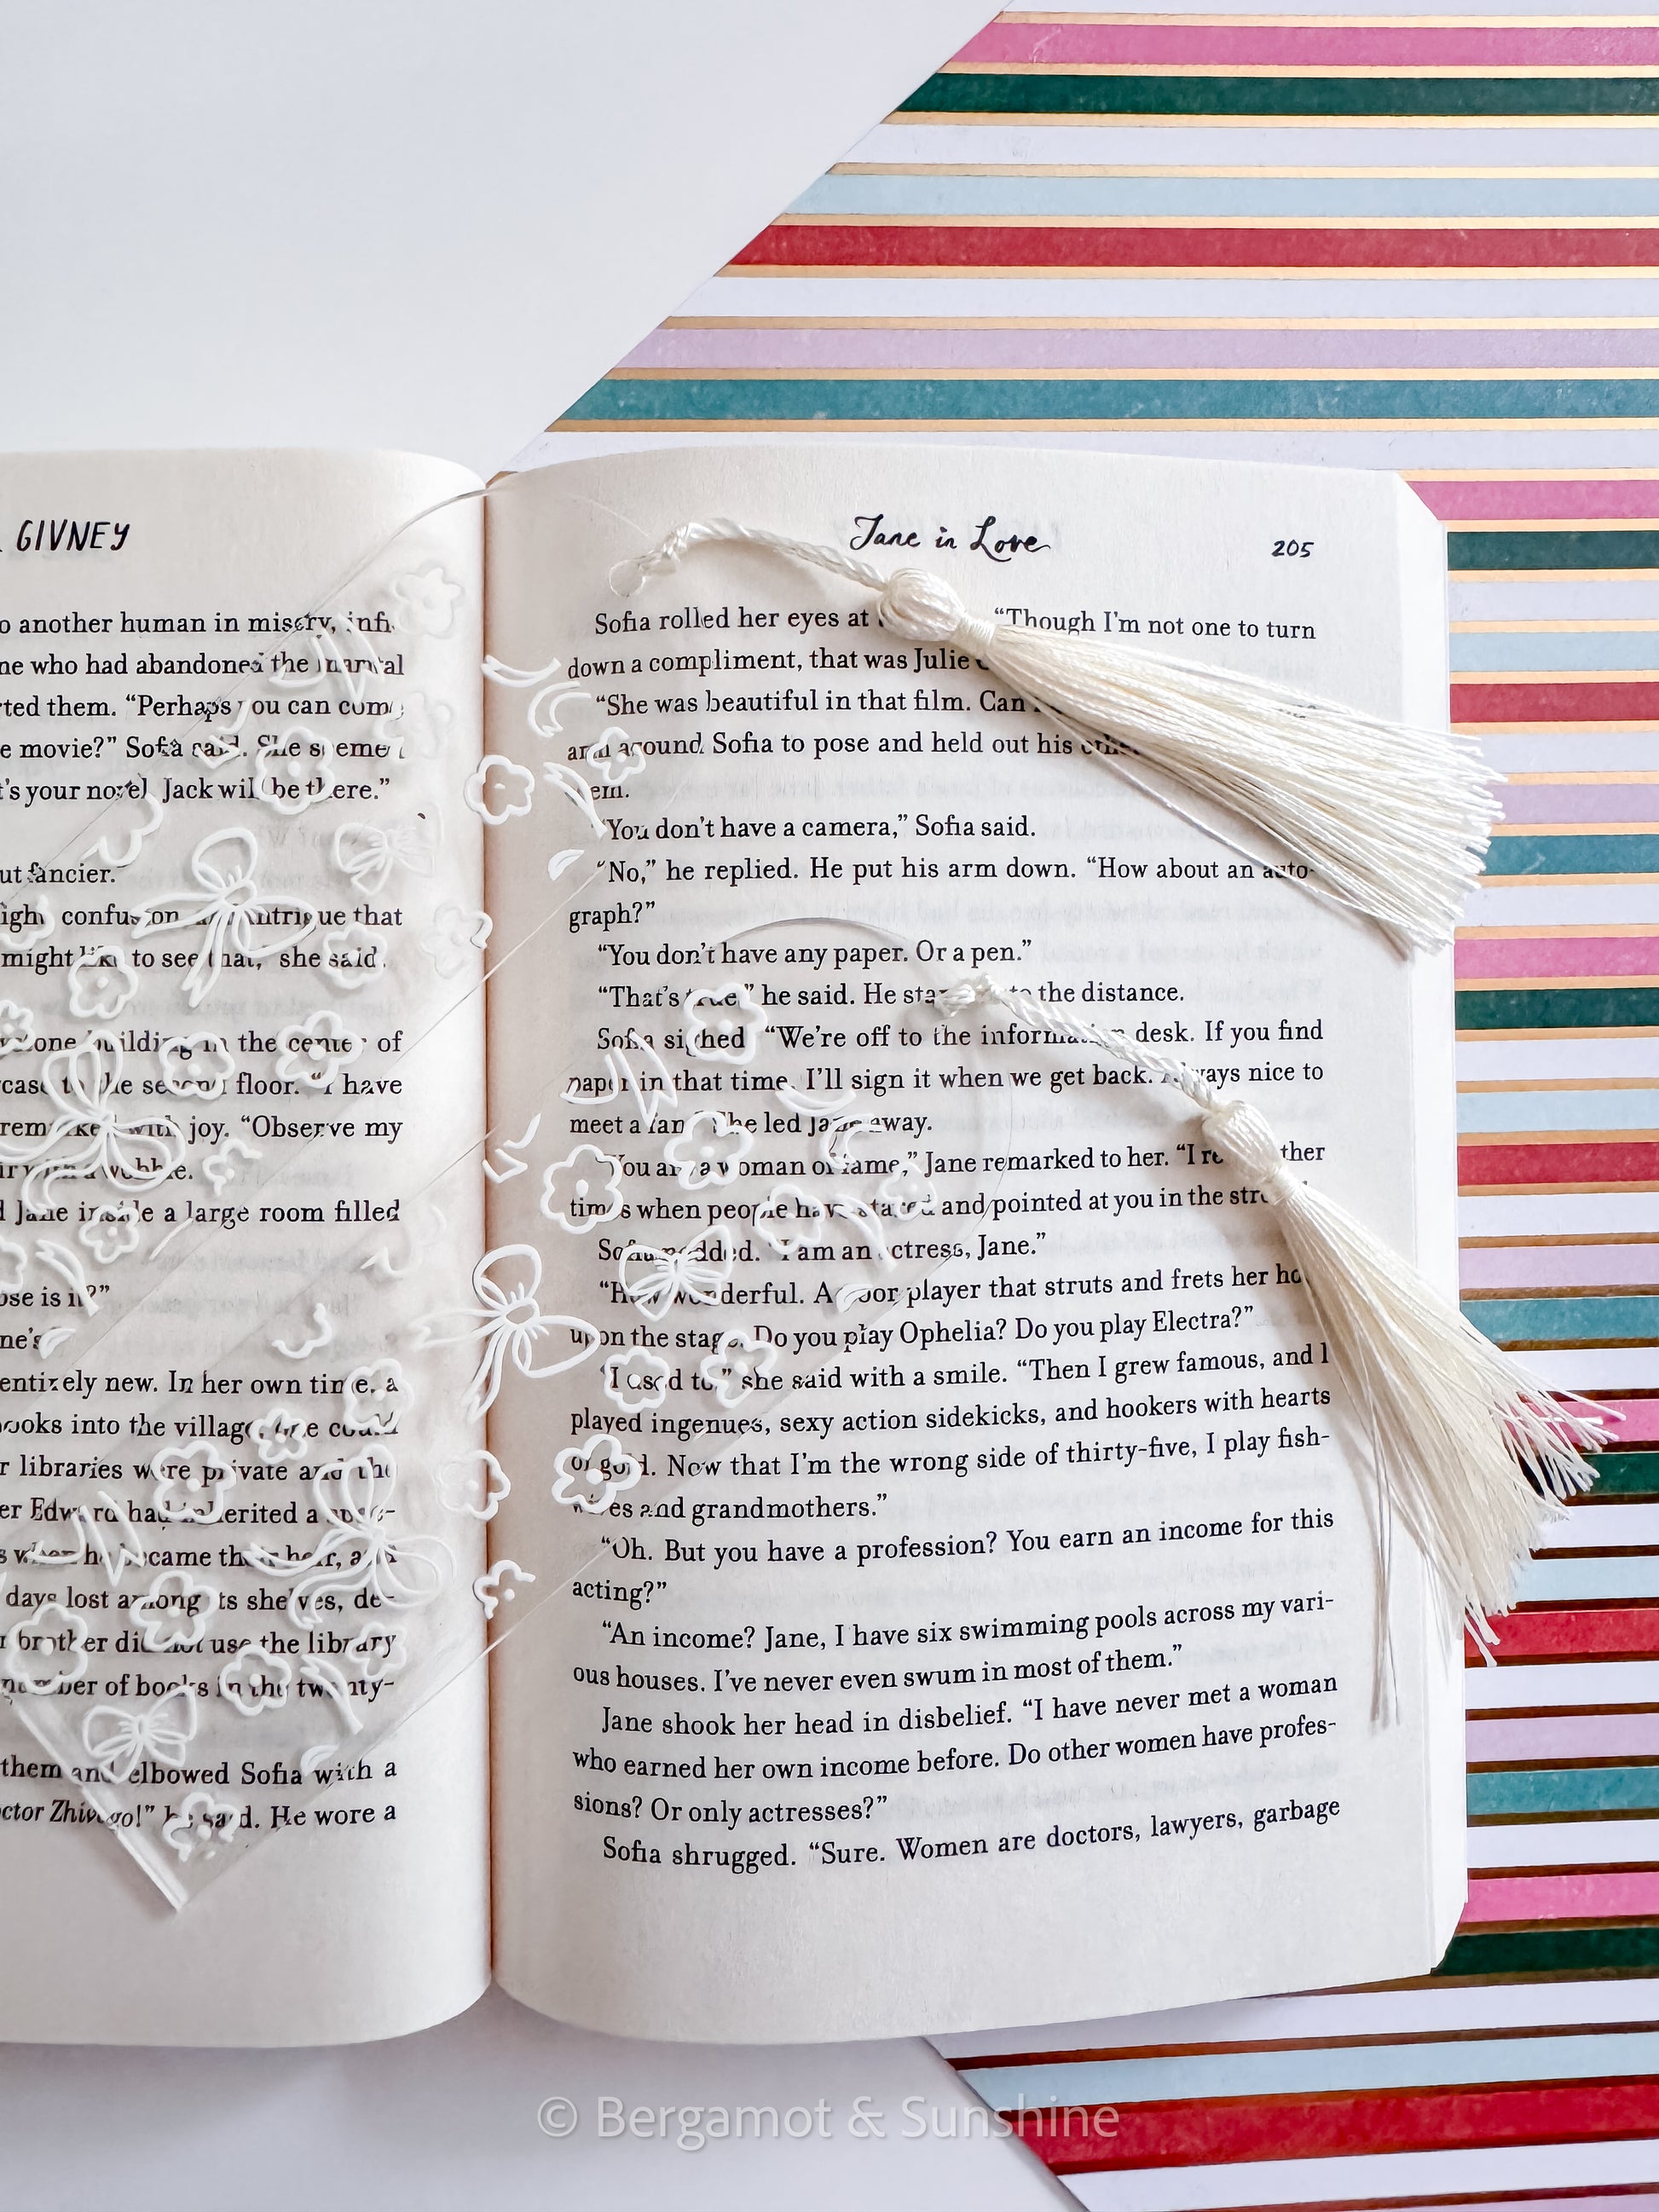 GIVNEY
another human in misery,
ne who had abandoned the marital
rted them. “Perhaps you can
e movie?” Sofia said. She seemed
t’s your novel. Jack will be there.”
ut fancier.”
confusion and intrigue that
might like to see that,” she said.
stone building in the center of
case to the second floor. “I have
remarked with joy. “Observe my
with a wobble.
Jane inside a large room filled
ose is it?”
ne’s
entirely new. In her own time, a
books into the village, one could
r libraries were private and the
er Edward had inherited a
s when he became their heir, and
days lost among its shelves, de-
brother did not use the library
number of books in the twenty-
them and elbowed Sofia with a
ctor Zhivago!” he said. He wore a
Jane in Love
205
Sofia rolled her eyes at “Though I’m not one to turn
down a compliment, that was Julie
“She was beautiful in that film. Can
arm around Sofia to pose and held out his other
them.
“You don’t have a camera,” Sofia said.
“No,” he replied. He put his arm down. “How about an auto-
graph?”
“You don’t have any paper. Or a pen.”
“That’s true,” he said. He stared into the distance.
Sofia sighed. “We’re off to the information desk. If you find
paper in that time, I’ll sign it when we get back. Always nice to
meet a fan.” She led Jane away.
“You are a woman of fame,” Jane remarked to her. “I other
times when people have stared and pointed at you in the
Sofia nodded. “I am an actress, Jane.”
“How wonderful. A poor player that struts and frets her
upon the stage. Do you play Ophelia? Do you play Electra?”
“I used to,” she said with a smile. “Then I grew famous, and I
played ingenues, sexy action sidekicks, and hookers with hearts
of gold. Now that I’m the wrong side of thirty-five, I play fish-
wives and grandmothers.”
“Oh. But you have a profession? You earn an income for this
acting?”
“An income? Jane, I have six swimming pools across my vari-
ous houses. I’ve never even swum in most of them.”
Jane shook her head in disbelief. “I have never met a woman
who earned her own income before. Do other women have profes-
sions? Or only actresses?”
Sofia shrugged. “Sure. Women are doctors, lawyers, garbage
© Bergamot & Sunshine